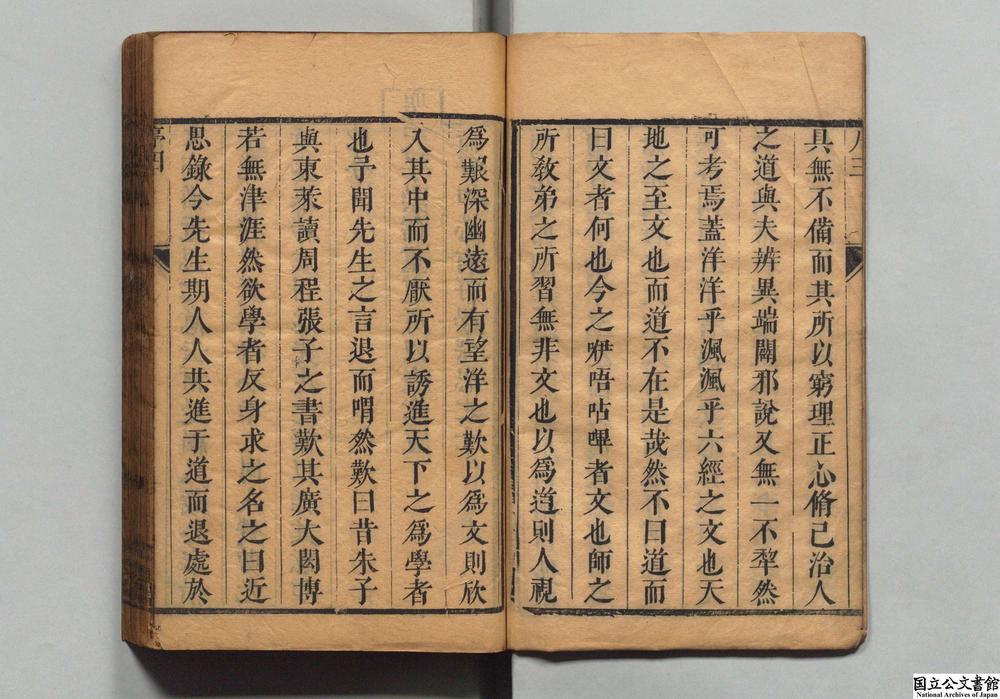 具無不備而其所以窮理正心脩己治人
之道與夫辨異端闢邪說又無一不犂然
可考焉蓋洋洋乎渢渢乎六經之文也天
地之至文也而道不在是哉然不曰道而
曰文者何也今之咿唔呫嗶者文也師之
所教弟之所習無非文也以爲道則人視
爲艱深幽遠而有望洋之歎以爲文則欣
入其中而不厭所以誘進天下之爲學者
也予聞先生之言退而喟然歎曰昔朱子
與東萊讀周程張子之書歎其廣大閎博
若無津涯然欲學者反身求之名之曰近
思錄今先生期人人共進于道而退處於
序四
国立公文書館
National Archives of Japan